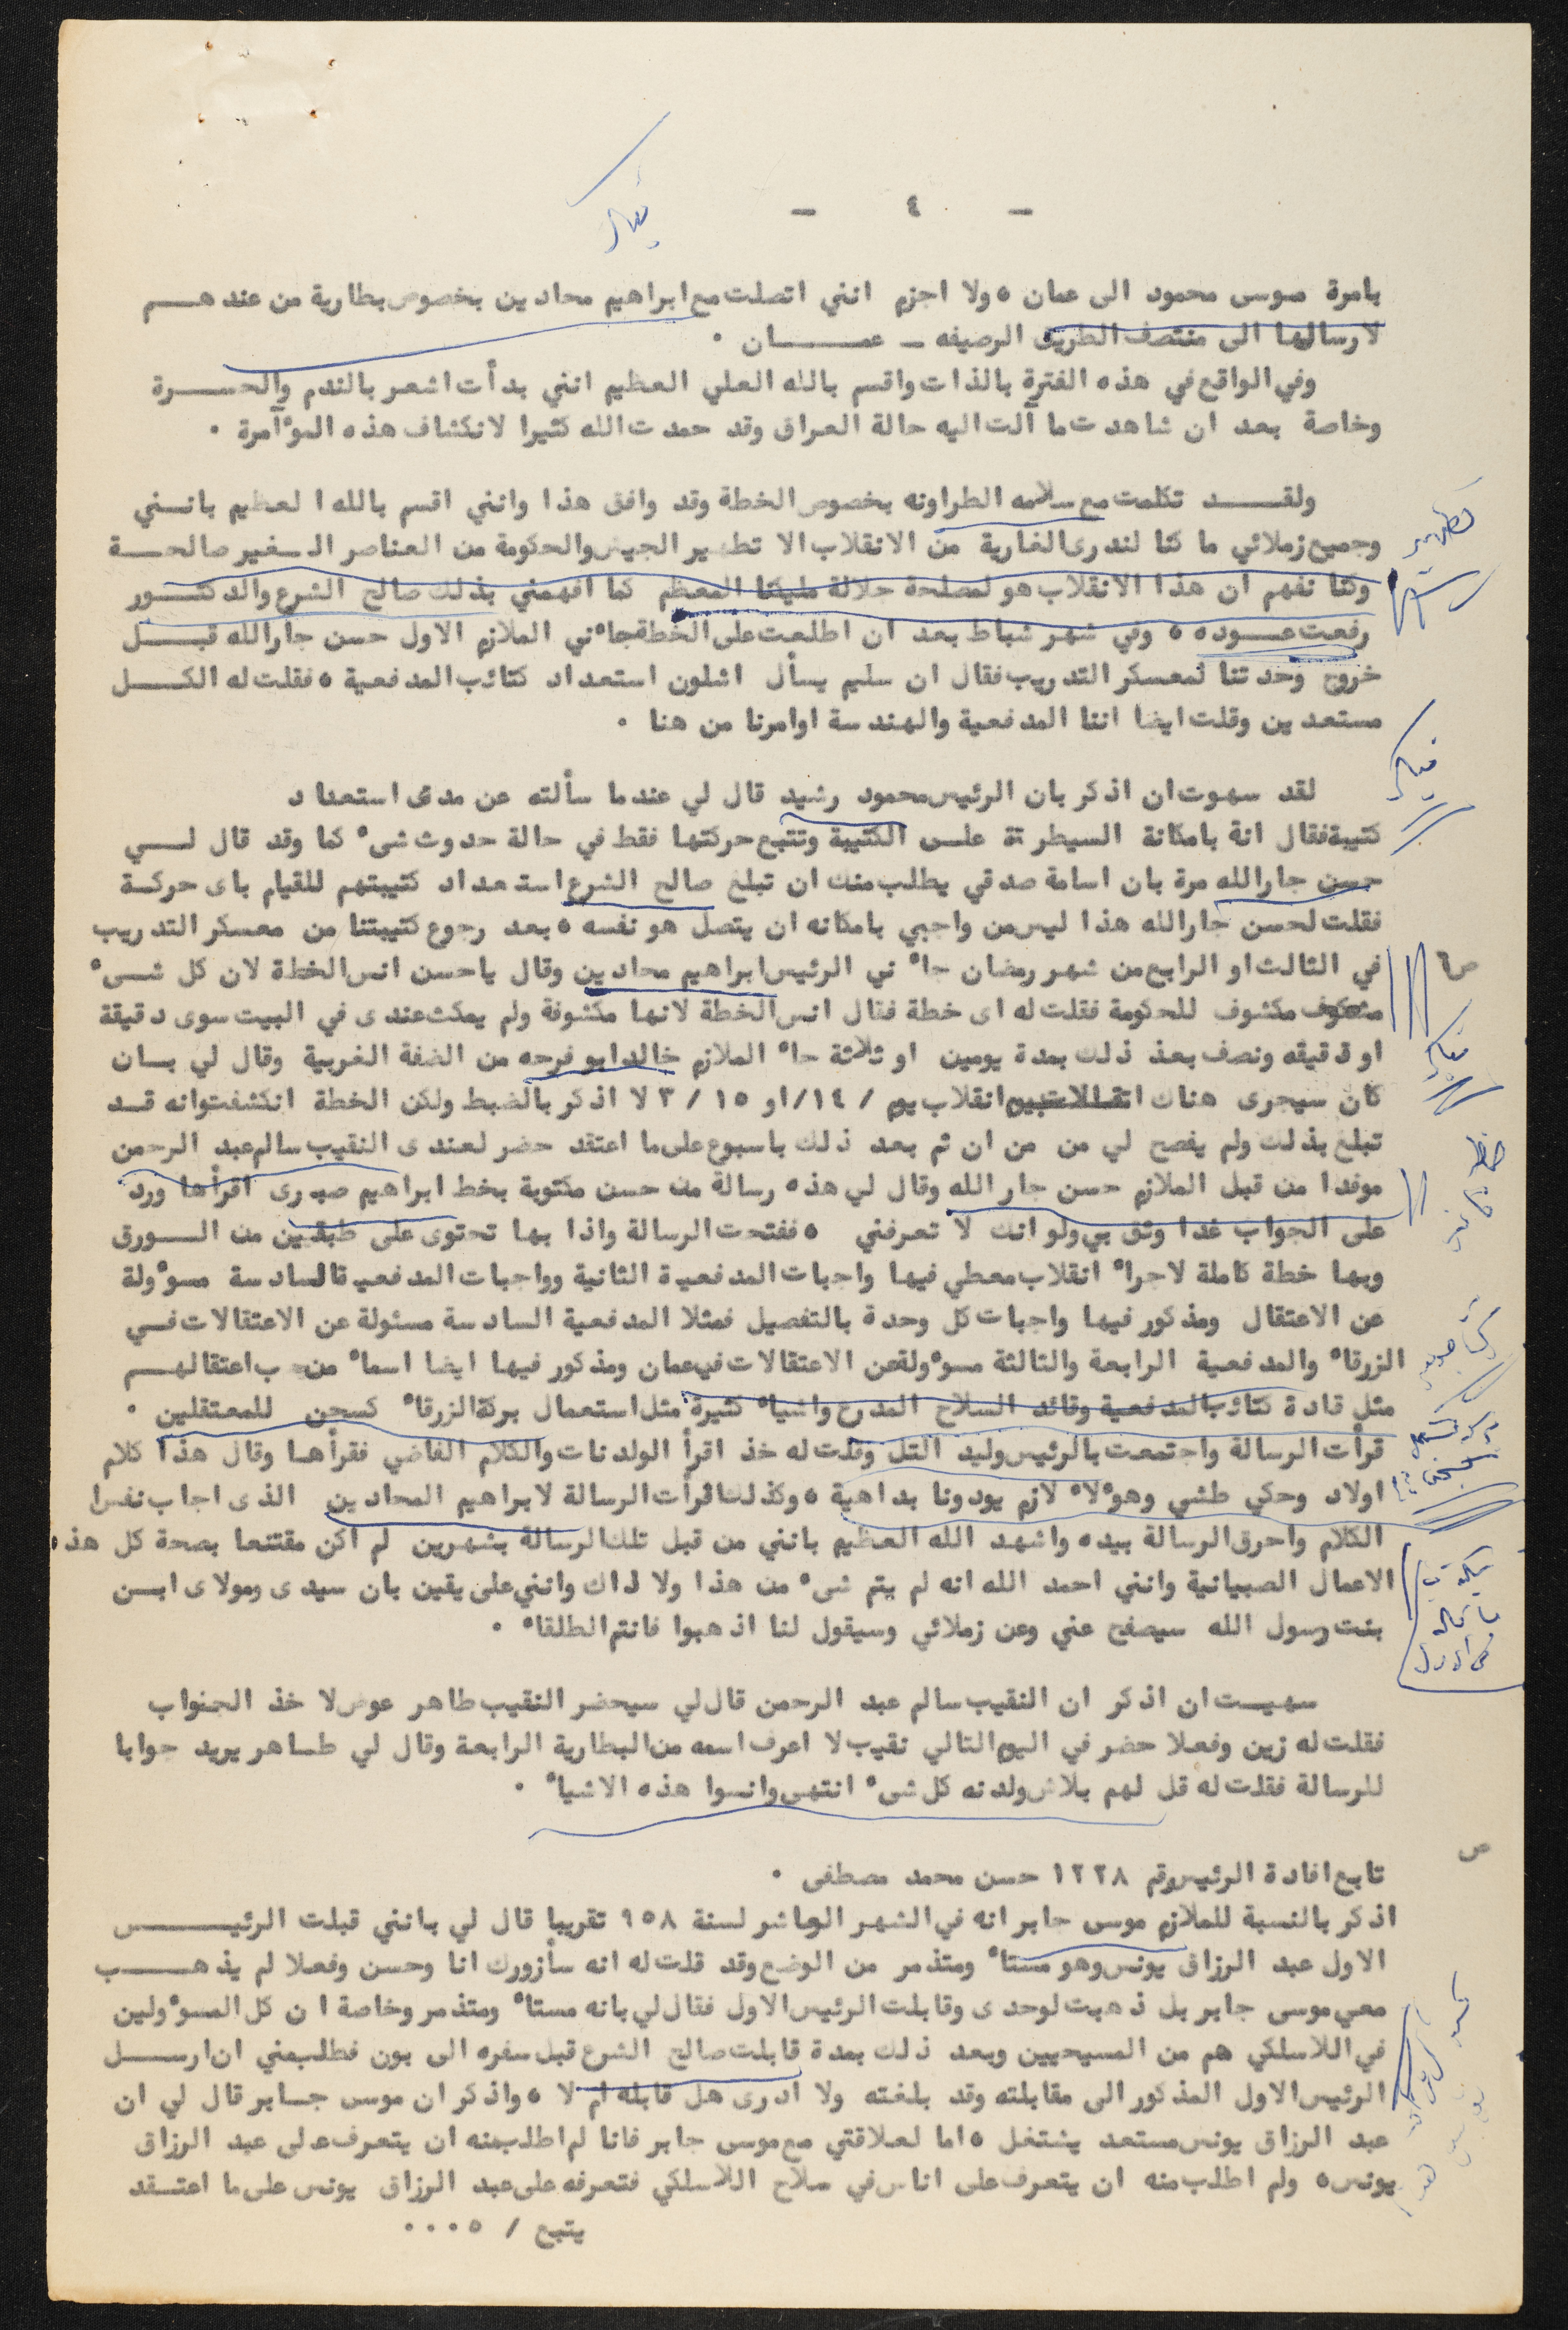 - ٤ -
بامرة موسى محمود الى عمان ٥ ولا اجزم انني اتصلت مع ابراهيم محادين بخصوص بطارية من عندهـــم
لارسالها الى منتصف الطريق الرصيفه ــ عمـــــــان ٠
وفي الواقع في هذه الفترة بالذات واقسم بالله العلي العظيم انني بدأت اشعر بالندم والحســـرة
وخاصة بعد ان شاهدت ما آلت اليه حالة العراق وقد حمدت الله كثيرا لانكشاف هذه المؤآمرة ٠
ولقــــد تكلمت مع سلامه الطراونه بخصوص الخطة وقد وافق هذا وانني اقسم بالله العظيم بانـني
وجميع زملائي ما كنا لندرى الغارية من الانقلاب الا تطهير الجيش والحكومة من العناصر الـغير صالحـــة
وكنا نفهم ان هذا الانقلاب هو لمصلحة جلالة مليكنا المعظم كما افهمني بذلك صالح الشرع والدكتــــور
رفعت عـــوده ٥ وفي شهر شباط بعد ان اطلعت على الخطة جاءني الملازم الاول حسن جارالله قبــــل
خروج وحدتنا لمعسكر التدريب فقال ان سليم يسأل اشلون استعداد كتائب المدفعية ٥ فقلت له الكــــل
مستعدين وقلت ايضا اننا المدفعية والهندسة اوامرنا من هنا ٠
لقد سهوت ان اذكر بان الرئيس محمود رشيد قال لي عندما سألته عن مدى استعداد
كتيبة فقال انة بامكانة السيطرتة على الكتيبة وتتبع حركتها فقط في حالة حدوث شىء كما وقد قال لـــي
حسن جارالله مرة بان اسامة صدقي يطلب منك ان تبلغ صالح الشرع استعداد كتيبتهم للقيام باى حركــة
فقلت لحسن جارالله هذا ليس من واجبي بامكانه ان يتصل هو نفسه ٥ بعد رجوع كتيبتنا من معسكر التدريب
في الثالث او الرابع من شهر رمضان جاء ني الرئيس ابراهيم محادين وقال ياحسن انس الخطة لان كل شـىء
مكشوف للحكومة فقلت له اى خطة فقال انس الخطة لانها مكشوفة ولم يمكث عندى في البيت سوى دقيقة
او دقيقه ونصف بعذ ذلك بمدة يومين او ثلاثة جاء الملازم خالد ابو فرحه من الضفة الغربية وقال لي بــان
كان سيجرى هناك انقلاب يوم / ١٤/ او ١٥ / ٣ لا اذكر بالضبط ولكن الخطة انكشفت وانه قــد
تبلغ بذلك ولم يفصح لي من من ان ثم بعد ذلك باسبوع على ما اعتقد حضر لعندى النقيب سالم عبد الرحمن
موفدا من قبل الملازم حسن جار الله وقال لي هذه رسالة من حسن مكتوبة بخط ابراهيم صبرى اقرأها ورد
على الجواب غدا وثق بي ولو انك لا تعرفني ٥ ففتحت الرسالة واذا بها تحتوى على طبقين من الـــورق
وبها خطة كاملة لاجراء انقلاب معطي فيها واجبات المدفعية الثانية وواجبات المدفعية السادسة مسؤولة
عن الاعتقال ومذكور فيها واجبات كل وحدة بالتفصيل فمثلا المدفعية السادسة مسئولة عن الاعتقالات فــي
الزرقاء والمدفعية الرابعة والثالثة مسؤولة عن الاعتقالات في عمان ومذكور فيها ايضا اسماء من يجب اعتقالهــم
مثل قادة كتائب المدفعية وقائد السلاح المدرع واشياء كثيرة مثل استعمال بركة الزرقاء كسجن للمعتقلين ٠
قرأت الرسالة واجتمعت بالرئيس وليد التل وقلت له خذ اقرأ الولدنات والكلام الفاضي فقرأهـا وقال هذا كلام
اولاد وحكي طشي وهؤلاء لازم يودونا بداهية ٥ وكذلك اقرأت الرسالة لابراهيم المحادين الذى اجاب نفس
الكلام واحرق الرسالة بيده واشهد الله العظيم بانني من قبل تلك الرسالة بشهرين لم اكن مقتنعا بصحة كل هذه
الاعمال الصبيانية وانني احمد الله انه لم يتم شىء من هذا ولا ذاك وانني على يقين بان سيدى ومولاى ابــن
بنت رسول الله سيصفح عني وعن زملائي وسيقول لنا اذهبوا فانتم الطلقاء ٠
سهيـت ان اذكر ان النقيب سالم عبد الرحمن قال لي سيحضر النقيب طاهر عوض لاخذ الجنواب
فقلت له زين وفعلا حضر في اليوم التالي نقيب لا اعرف اسمه من البطارية الرابعة وقال لي طـاهر يريد جوابا
للرسالة فقلت له قل لهم بلاش ولدنه كل شىء انتهى وانسوا هذه الاشياء ٠
تابع افادة الرئيس رقم ١٢٢٨ حسن محمد مصطفى ٠
اذكر بالنسبة للملازم موسى جابر انه في الشهر العاشر لسنة ٩٥٨ تقريبا قال لي بانني قبلت الرئيـــــس
الاول عبد الرزاق يونس وهو مستاء ومتذمر من الوضع وقد قلت له انه سأزورك انا وحسن وفعلا لم يذهـــب
معي موسى جابر بل ذهبت لوحدى وقابلت الرئيس الاول فقال لي بانه مستاء ومتذمر وخاصة ان كل المسؤولين
في اللاسلكي هم من المسيحيين وبعد ذلك بمدة قابلت صالح الشرع قبل سفره الى بون فطلب مني ان ارســـل
الرئيس الاول المذكور الى مقابلته وقد بلغته ولا ادرى هل قابله ام لا ٥ واذكر ان موسى جـابر قال لي ان
عبد الرزاق يونس مستعد يشتغل ٥ اما لعلاقتي مع موسى جابر فانا لم اطلب منه ان يتعرف على عبد الرزاق
يونس ٥ ولم اطلب منه ان يتعرف على اناس في سلاح اللاسلكي فتعرفه على عبد الرزاق يونس على ما اعتـقد
يتبع / ٥ ٠٠٠